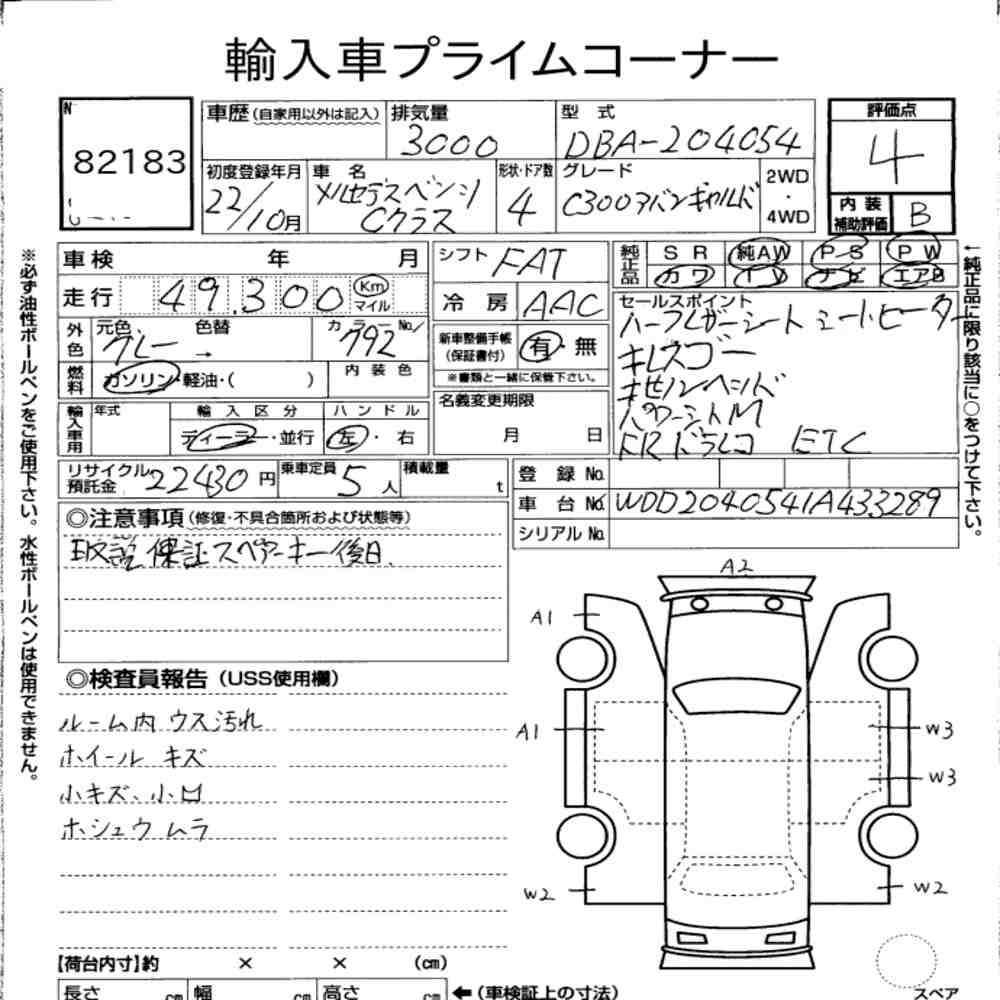 輸入車プライムコーナー
N
82183
車歴 (自家用以外は記入)
排気量
3000
型 式
DBA-204054
評価点
4
初度登録年月
22/10月
車 名
メルセデスベンツ
Cクラス
形状・ドア数
4
グレード
C300アバンギャルド
2WD
・
4WD
内 装
補助評価
B
車検 年 月
シフト FAT
純正品
S R 純AW P S P W
カワ T V ナビ エアB
走行 49,300 Km マイル
冷 房 AAC
セールスポイント
ハーフレザーシート シートヒーター
キーレスゴー
キセノンヘッド
パワーシートM
ドラレコ ETC
外色
元色 色替
グレー →
カラーNo.
792
新車整備手帳
(保証書付)
有・無
※書類と一緒に保管下さい。
燃料
ガソリン・軽油・( )
内 装 色
名義変更期限
月 日
輸入車用
年式
輸 入 区 分
ディーラー・並行
ハ ン ド ル
左・右
リサイクル
預託金
22430円
乗車定員
5人
積載量
t
登 録 No.
車 台 No. WDD2040541A433289
シリアル No.
◎注意事項 (修復・不具合箇所および状態等)
取説 保証 スペアーキー後日
◎検査員報告 (USS使用欄)
ルーム内 ウス汚れ
ホイール キズ
小キズ、小凹
ホシュウ ムラ
A2
A1
A1
W3
W3
W2
W2
スペア
【荷台内寸】約 × × (cm)
長さ cm 幅 cm 高さ cm ←(車検証上の寸法)
※必ず油性ボールペンをご使用下さい。水性ボールペンは使用できません。
←純正品に限り該当に○をつけて下さい。